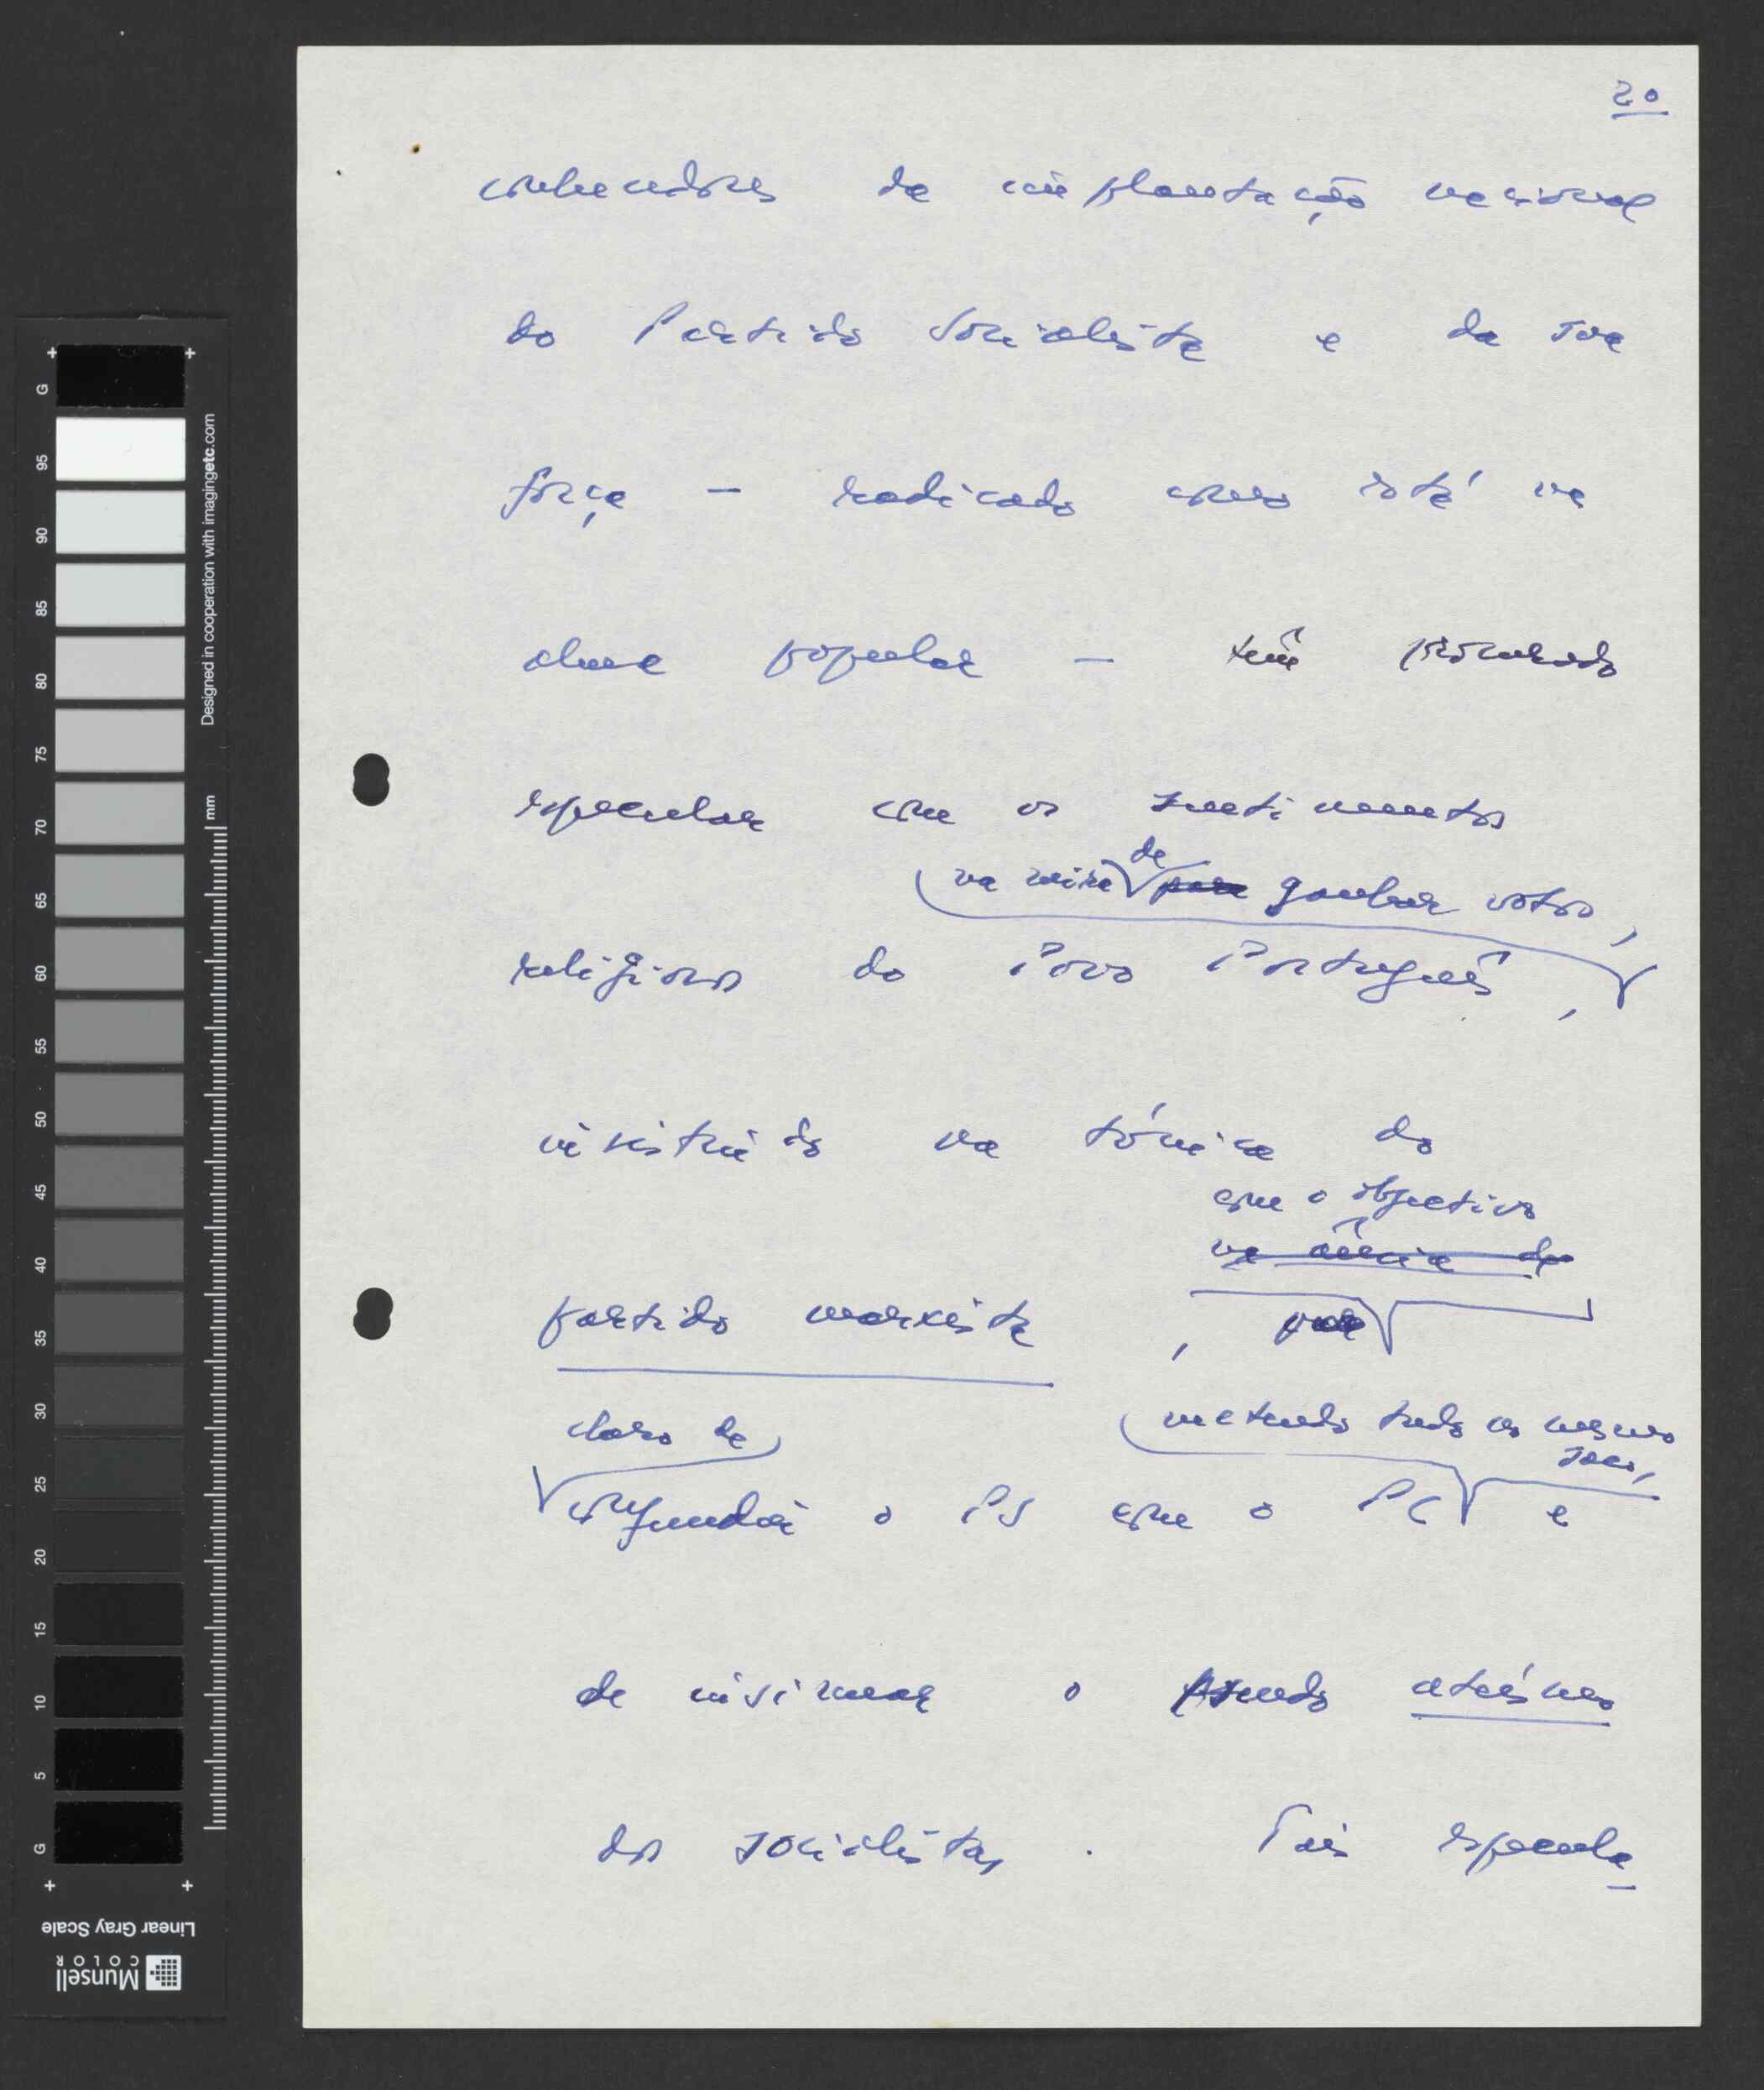 20
conhecedores da implantação nacional
do Partido Socialista e da sua
força — radicado como está na
alma popular — têm procurado
especular com os sentimentos
na mira de para ganhar votos,
religiosos do Povo Português,
insistindo na tónica do
com o objectivo
na ância de
partido marxista, para
claro de metendo tudo no mesmo
saco,
confundir o PS com o PC e
de insinuar o pseudo ateísmo
dos socialistas. Tais especula
G
95
90
85
80
75
70
65
60
55
50
45
40
35
30
25
20
15
10
5
G
Designed in cooperation with imagingetc.com
mm
Linear Gray Scale
Munsell
COLOR